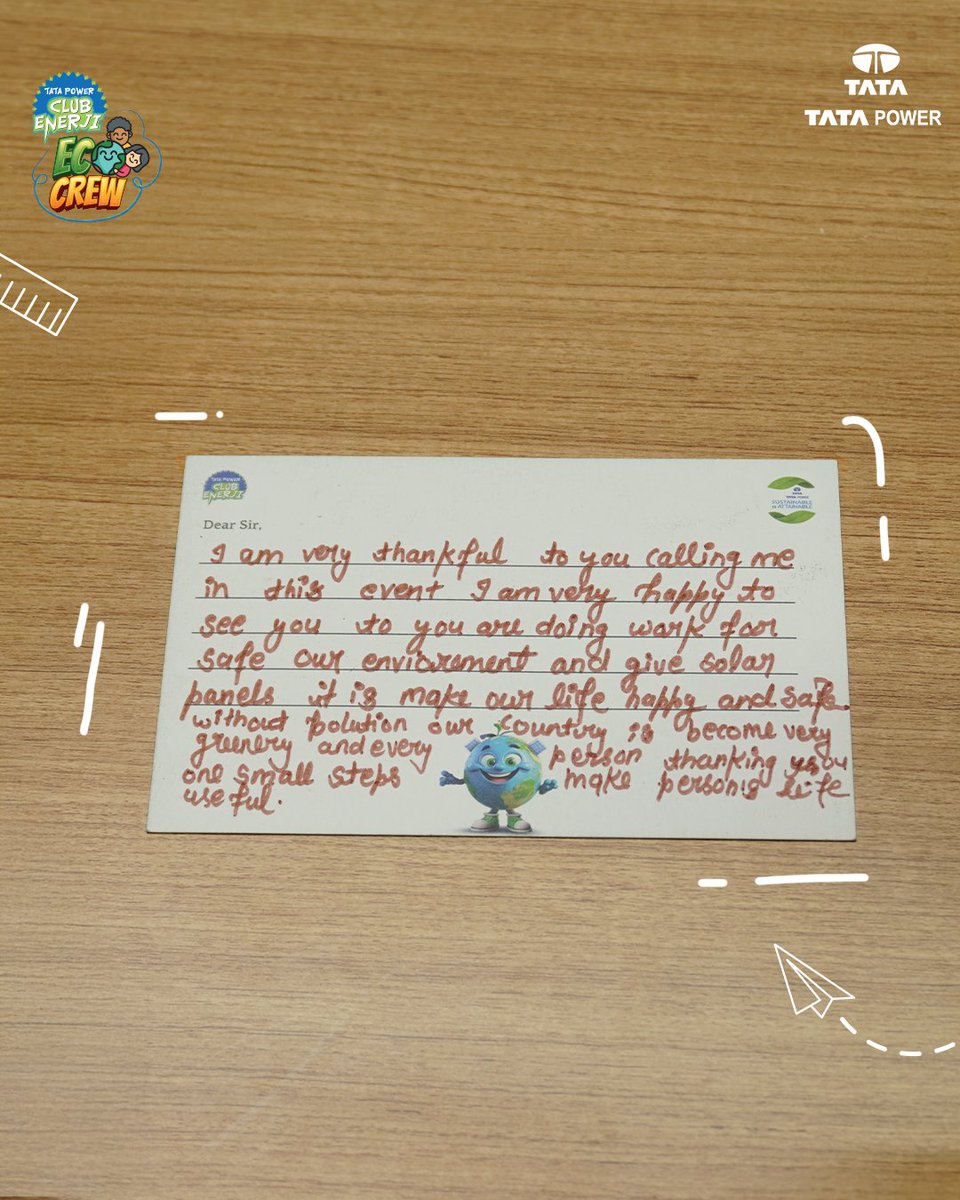 TATA POWER
CLUB
ENERJI
ECO
CREW
TATA
TATA POWER
TATA POWER
CLUB
ENERJI
TATA
TATA POWER
SUSTAINABLE
IS ATTAINABLE
Dear Sir,
I am very thankful to you calling me
in this event I am very happy to
see you to you are doing work foor
safe our envicrement and give solar
panels it is make our life happy and safe.
without polution our country is become very
greenery and every person thanking you
one small steps make person's life
useful.